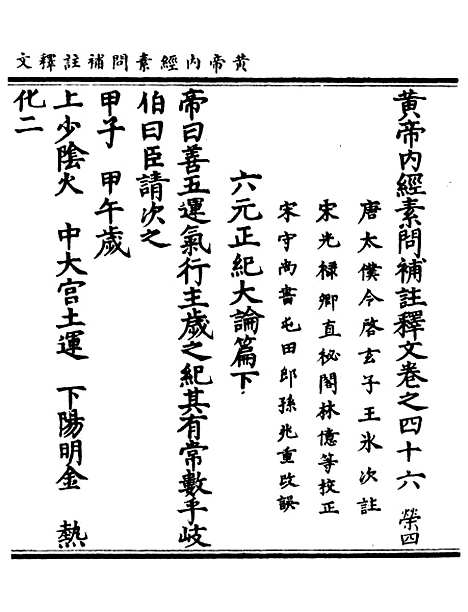 黃帝內經素問補註釋文
黃帝內經素問補註釋文卷之四十六 榮四
唐太僕令啓玄子王氷次註
宋光祿卿直秘閣林億等校正
宋守尚書屯田郎孫兆重改誤
六元正紀大論篇下
帝曰善五運氣行主歲之紀其有常數乎岐
伯曰臣請次之
甲子 甲午歲
上少陰火 中大宮土運 下陽明金 熱
化二